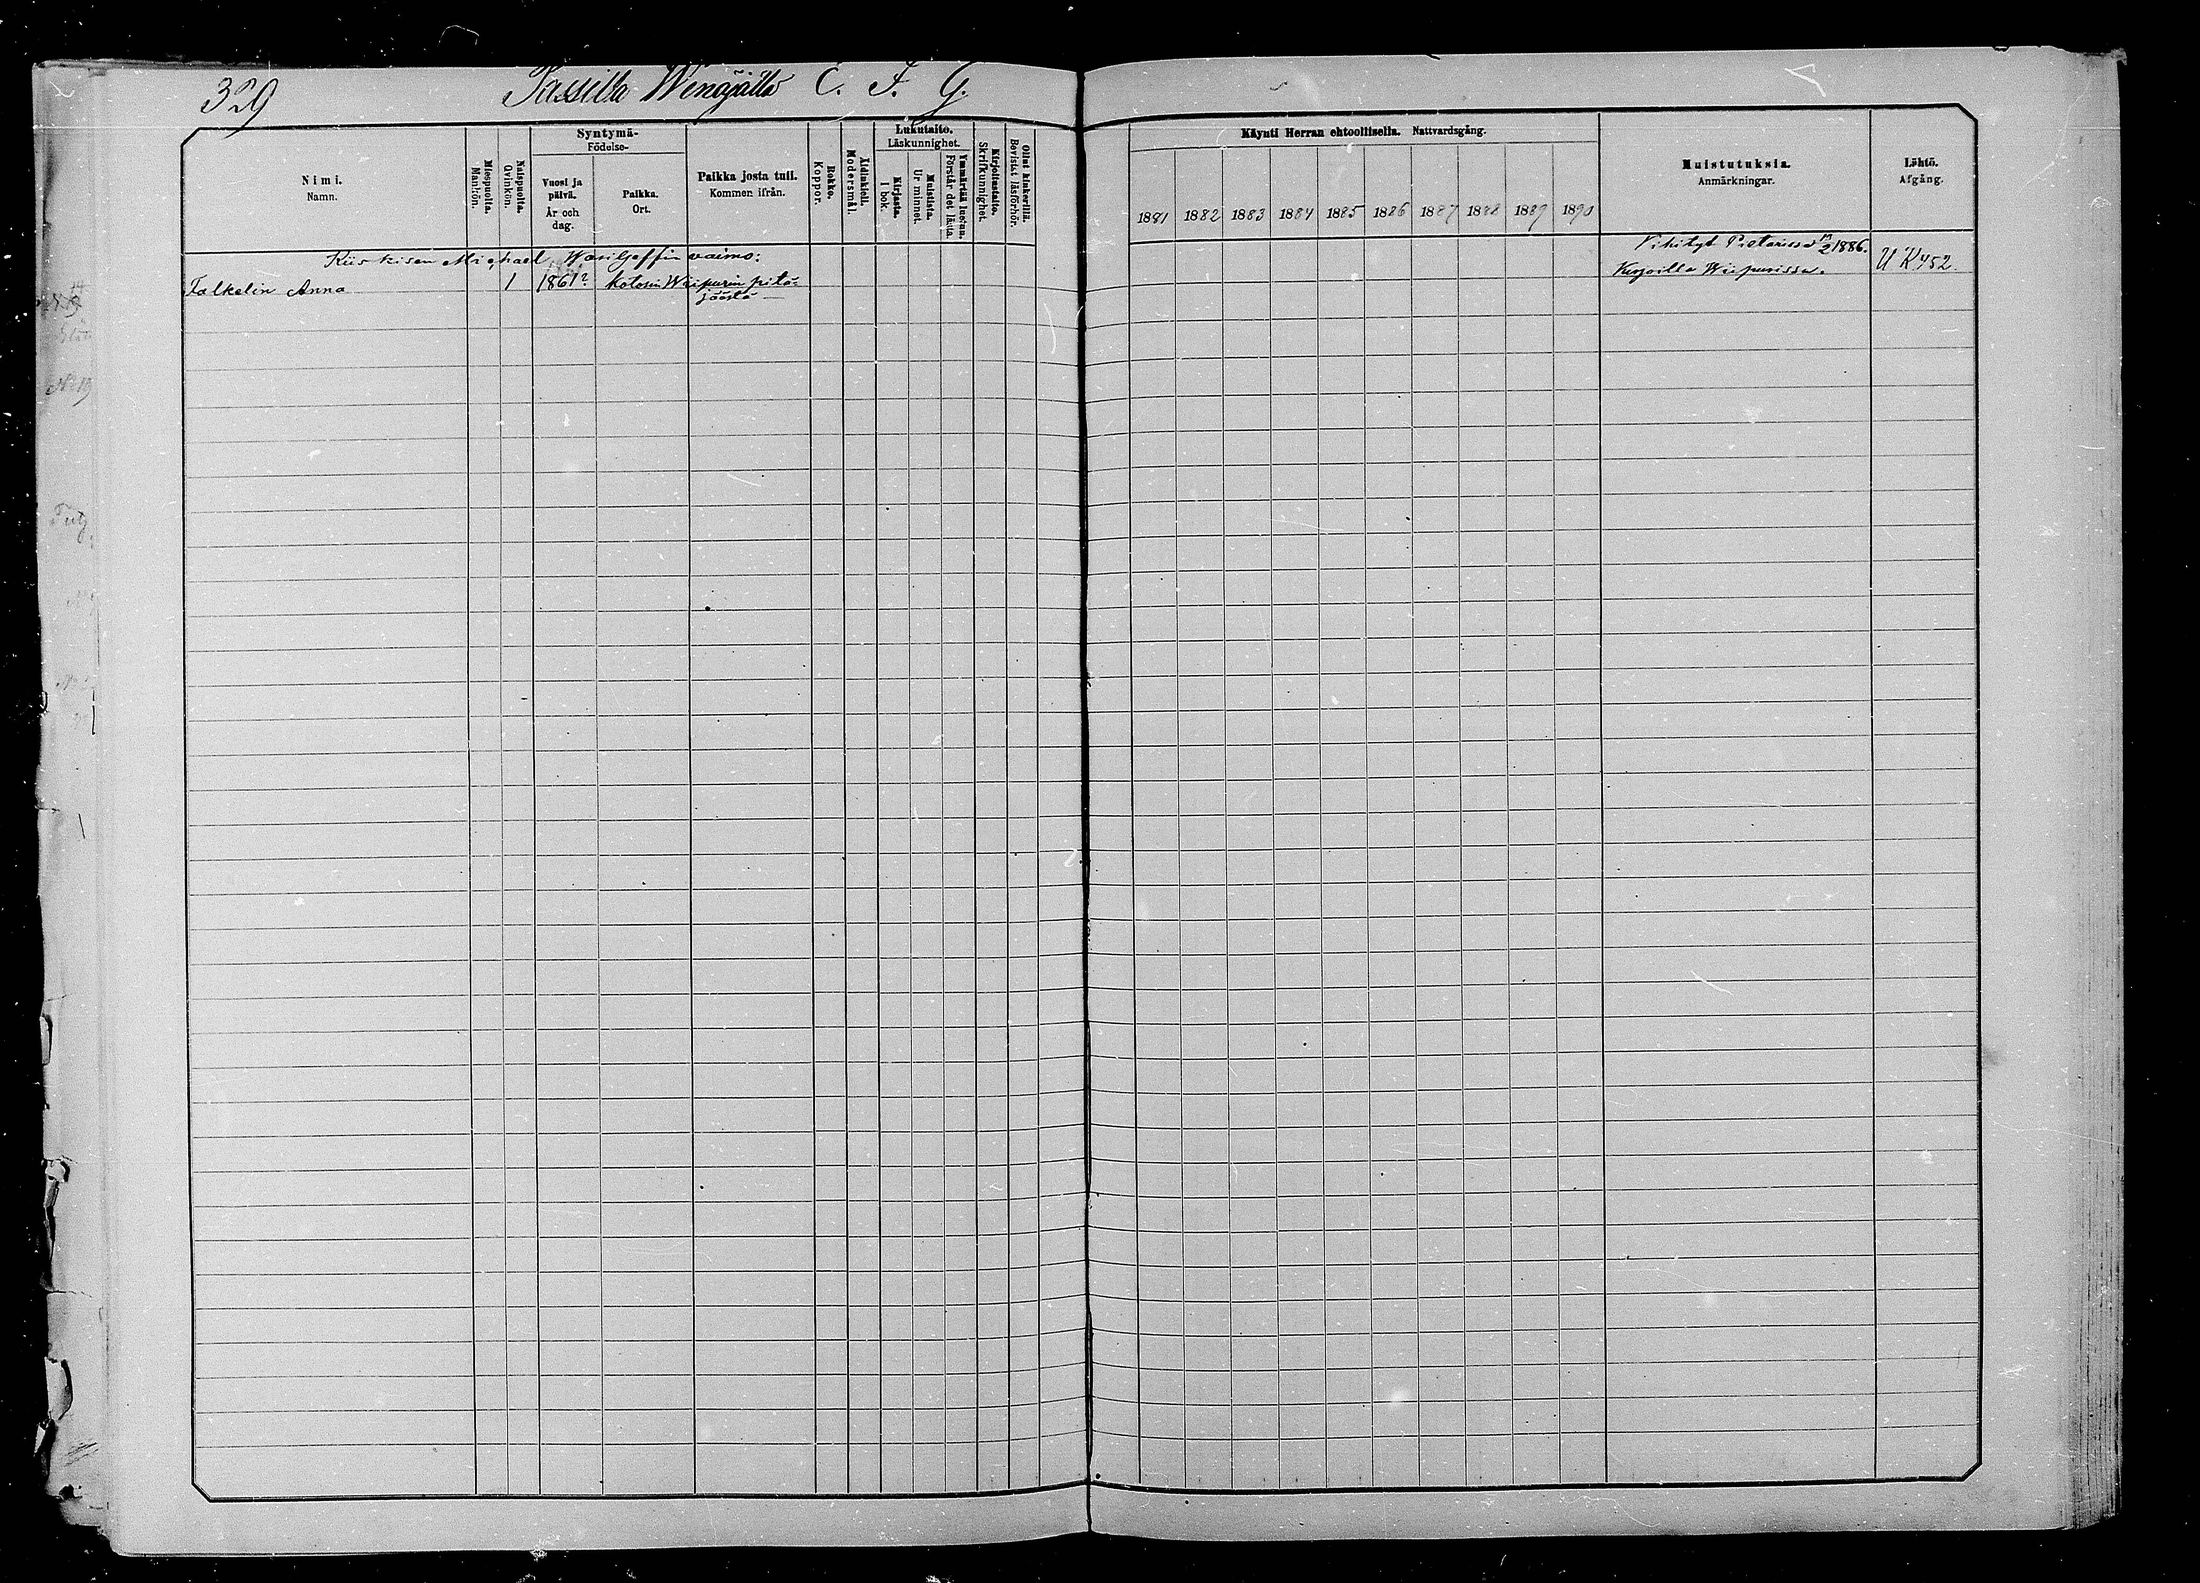 329
Passilla Wenäjällä C. F. G.
Nimi.
Namn.
Miespuolta.
Mankön.
Naispuolta.
Qvinkön.
Syntymä-
Födelse-
Vuosi ja
päivä.
År och
dag.
Paikka.
Ort.
Paikka josta tuli.
Kommen ifrån.
Rokko.
Koppor.
Äidinkieli.
Modersmål.
Lukutaito.
Läskunnighet.
Kirjasta.
I bok.
Muistista.
Ur minnet.
Ymmärtää luetun.
Förstår det lästa.
Kirjoitustaito.
Skrifkunnighet.
Ollut kinkerillä.
Bevistat läsförhör.
Käynti Herran ehtoollisella. Nattvardsgång.
1881 1882 1883 1884 1885 1886 1887 1888 1889 1890
Muistutuksia.
Anmärkningar.
Lähtö.
Afgång.
Kiiskisen Michael Wasiljeffin vaimo:
Vihityt Pietarissa 17/2 1886.
Falkelin Anna 1 1861? kotosin Wiipurin pitä-
jäästä
Kirjoilla Wiipurissa.
U K 452